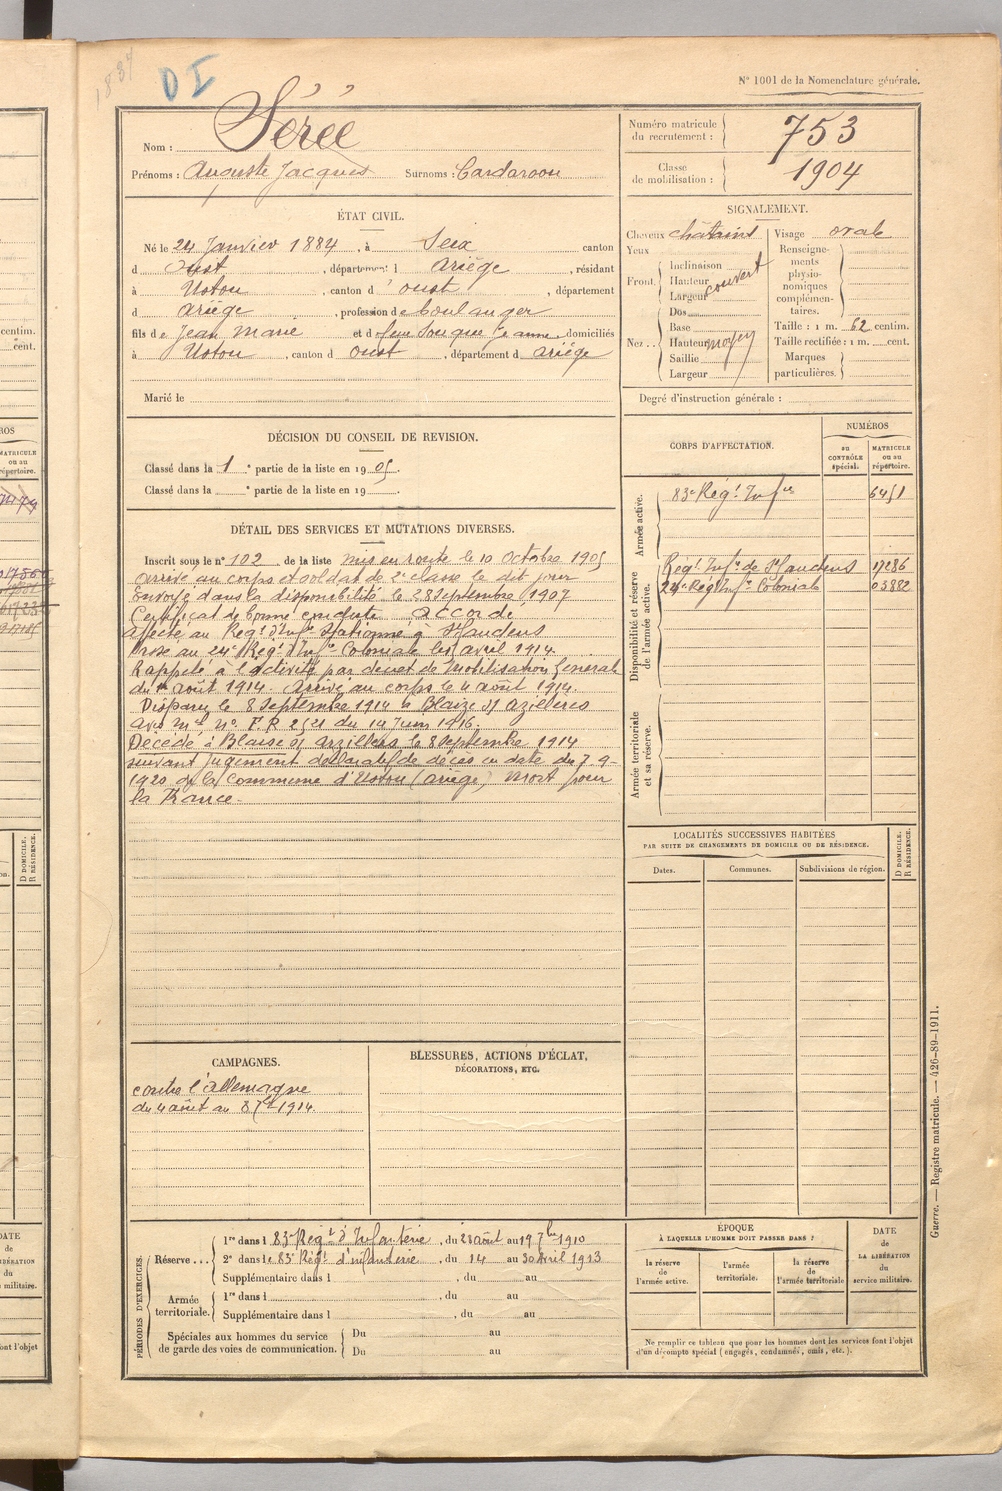 1884
DI
N° 1001 de la Nomenclature générale.
Nom : Sérée
Prénoms : Auguste Jacques Surnoms :
Numéro matricule du recrutement : 753
Classe de mobilisation : 1904
ÉTAT CIVIL.
Né le 24 Janvier 1884, à Seix canton
d oust, département d Ariège, résidant
à Ustou, canton d oust, département
d Ariège, profession de boulanger
fils de Jean Marie et d feue domiciliés
à Ustou, canton d oust, département d ariège
Marié le
SIGNALEMENT.
Cheveux chatains
Yeux
Front. Inclinaison
Hauteur couvert
Largeur
Nez.. Dos
Base
Hauteur moyen
Saillie
Largeur
Visage oval
Renseignements physionomiques complémentaires.
Taille : 1 m. 62 centim.
Taille rectifiée : 1 m. cent.
Marques particulières.
Degré d'instruction générale :
DÉCISION DU CONSEIL DE REVISION.
Classé dans la 1e partie de la liste en 1905.
Classé dans la e partie de la liste en 19
DÉTAIL DES SERVICES ET MUTATIONS DIVERSES.
Inscrit sous le n° 102 de la liste mis en route le 10 Octobre 1905
arrivé au corps et soldat de 2e classe le dit jour
Envoyé dans la disponibilité le 28 Septembre 1907
Certificat de bonne conduite accordé
affecté au Régt d'Infie stationné à St Gaudens
Passé au 24e Régt d'Infie Coloniale le avril 1914.
Rappelé à l'activité par décret de Mobilisation Générale
du 1er août 1914. Arrivé au corps le 4 août 1914.
Disparu le 8 Septembre 1914 à Blaize st azilières
avis mel no. F.R 2521 du 14 Juin 1916.
Décédé à Blaise st arzillers le 8 septembre 1914
suivant jugement déclaratif de décès en date du 7-9-
1920 de la commune d'Ustou (ariège) Mort pour
la France.
CORPS D'AFFECTATION.
NUMÉROS
au CONTRÔLE spécial.
MATRICULE ou au répertoire.
Armée active.
83e Régt Infie 6451
Disponibilité et réserve de l'armée active.
Régt Infie de St Gaudens 17286
24e Régt Infie Coloniale 03882
Armée territoriale et sa réserve.
LOCALITÉS SUCCESSIVES HABITÉES
PAR SUITE DE CHANGEMENTS DE DOMICILE OU DE RÉSIDENCE.
Dates. Communes. Subdivisions de région. D DOMICILE. R RÉSIDENCE.
CAMPAGNES.
contre l'allemagne
du 4 août au 8 7bre 1914.
BLESSURES, ACTIONS D'ÉCLAT,
DÉCORATIONS, ETC.
PÉRIODES D'EXERCICES.
Réserve... 1re dans l 83e Régt d'Infanterie, du 28 août au 19 7bre 1910
2e dans le 83e Régt d'infanterie, du 14 au 30 Avril 1913
Supplémentaire dans l , du au
Armée territoriale. 1re dans l , du au
Supplémentaire dans l , du au
Spéciales aux hommes du service de garde des voies de communication. Du au
Du au
ÉPOQUE
À LAQUELLE L'HOMME DOIT PASSER DANS :
la réserve de l'armée active. l'armée territoriale. la réserve de l'armée territoriale
DATE de LA LIBÉRATION du service militaire.
Ne remplir ce tableau que pour les hommes dont les services font l'objet
d'un décompte spécial (engagés, condamnés, omis, etc.).
Guerre. — Registre matricule. — 426-89-1911.